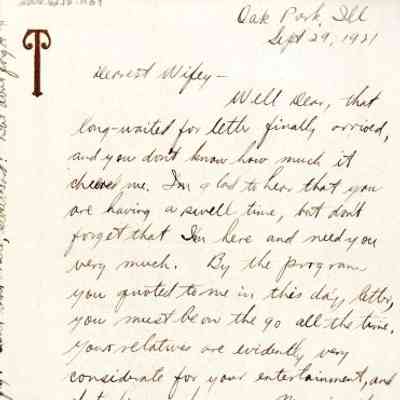 Oak Park, Ill
Sept 29, 1921
T
Dearest Wifey—
Well Dear, that
long-waited for letter finally arrived,
and you don't know how much it
cheered me. I'm glad to hear that you
are having a swell time, but don't
forget that I'm here and need you
very much. By the program
you quoted to me in this day letter,
you must be on the go all the time.
Your relatives are evidently very
considerate for your entertainment, and